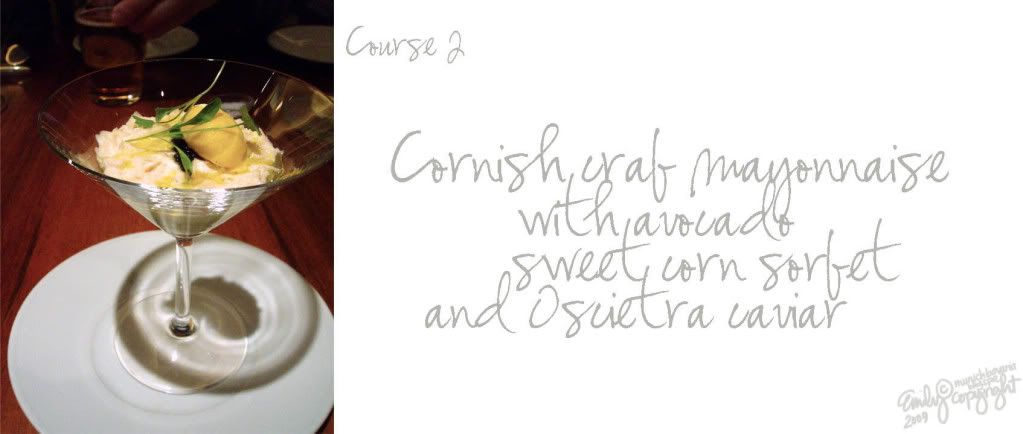 Course 2
Cornish crab mayonnaise
with avocado
sweet corn sorbet
and Oscietra caviar
Emily © copyright
2009